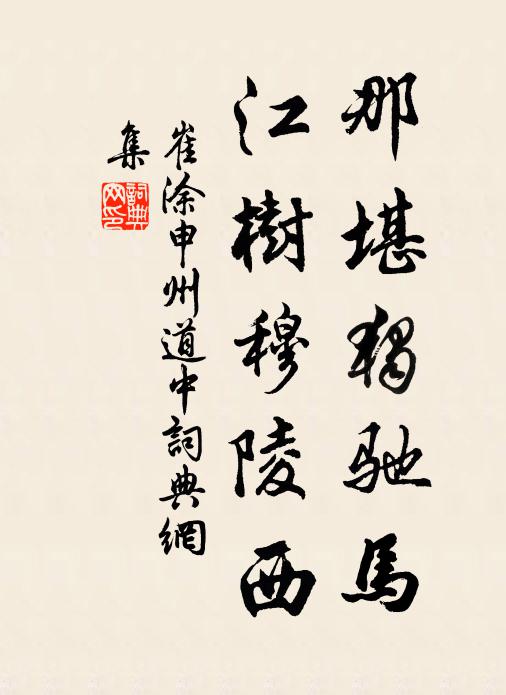 那堪獨馳馬
江樹穆陵西
崔涂申州道中詞典網
集
詞典網印